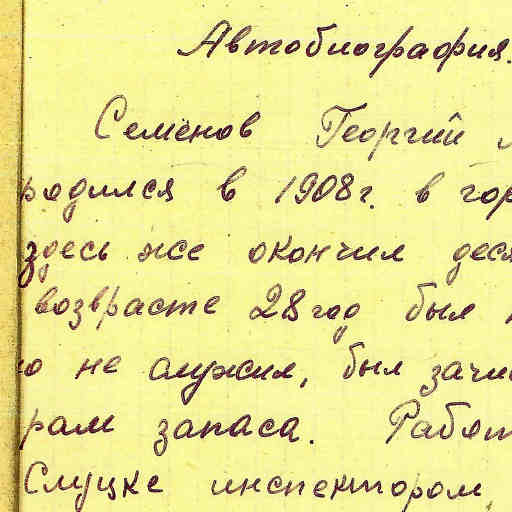 Автобиография.
Семёнов Георгий
родился в 1908г. в гор
здесь же окончил деся
возврасте 28 год был
но не служил, был зачис
рам запаса. Работ
Слуцке инспектором